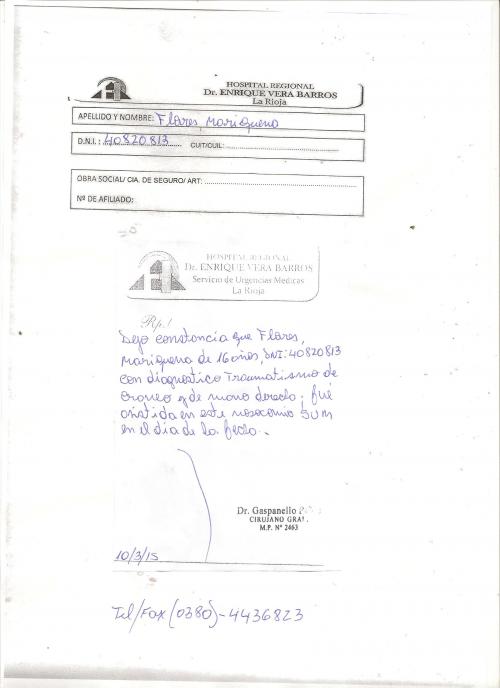 HOSPITAL REGIONAL
Dr. ENRIQUE VERA BARROS
La Rioja
APELLIDO Y NOMBRE: Flores, Mariquena
D.N.I. : 40820813 CUIT/CUIL:
OBRA SOCIAL/ CIA. DE SEGURO/ ART:
Nº DE AFILIADO:
HOSPITAL REGIONAL
Dr. ENRIQUE VERA BARROS
Servicio de Urgencias Medicas
La Rioja
Rp./
Dejo constancia que Flores,
Mariquena de 16 años, DNI: 40820813
con diagnostico Traumatismo de
craneo y de mano derecha; fué
asistida en este nosocomio SUM
en el dia de la fecha.
Dr. Gaspanello
CIRUJANO GRAL.
M.P. Nº 2463
10/3/15
Tel/Fax (0380)-4436823